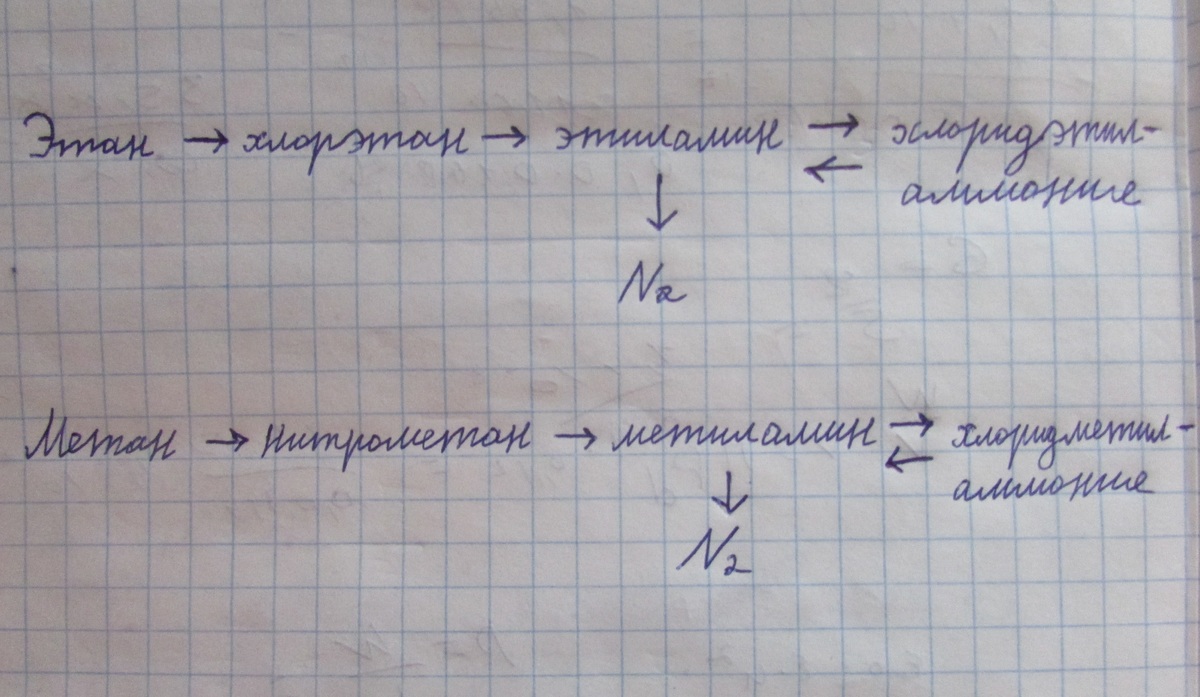 Этан → хлорэтан → этиламин ⇄ хлоридэтил-
аммоние
↓
N₂
Метан → нитрометан → метиламин ⇄ хлоридметил-
аммоние
↓
N₂